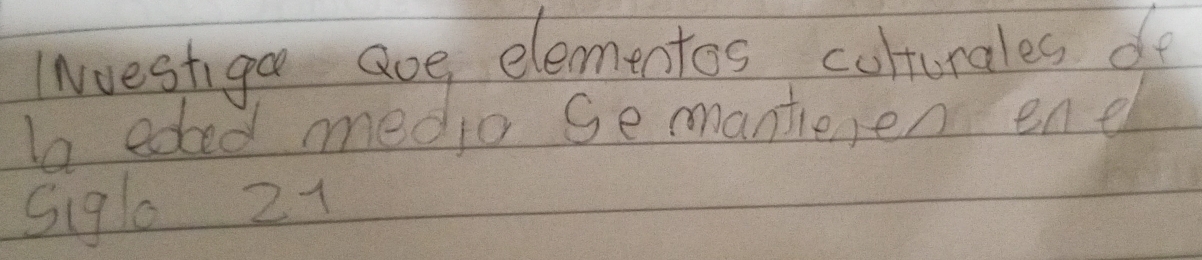 Investiga Que elementos culturales de
la edad media se mantienen en el
Siglo 21